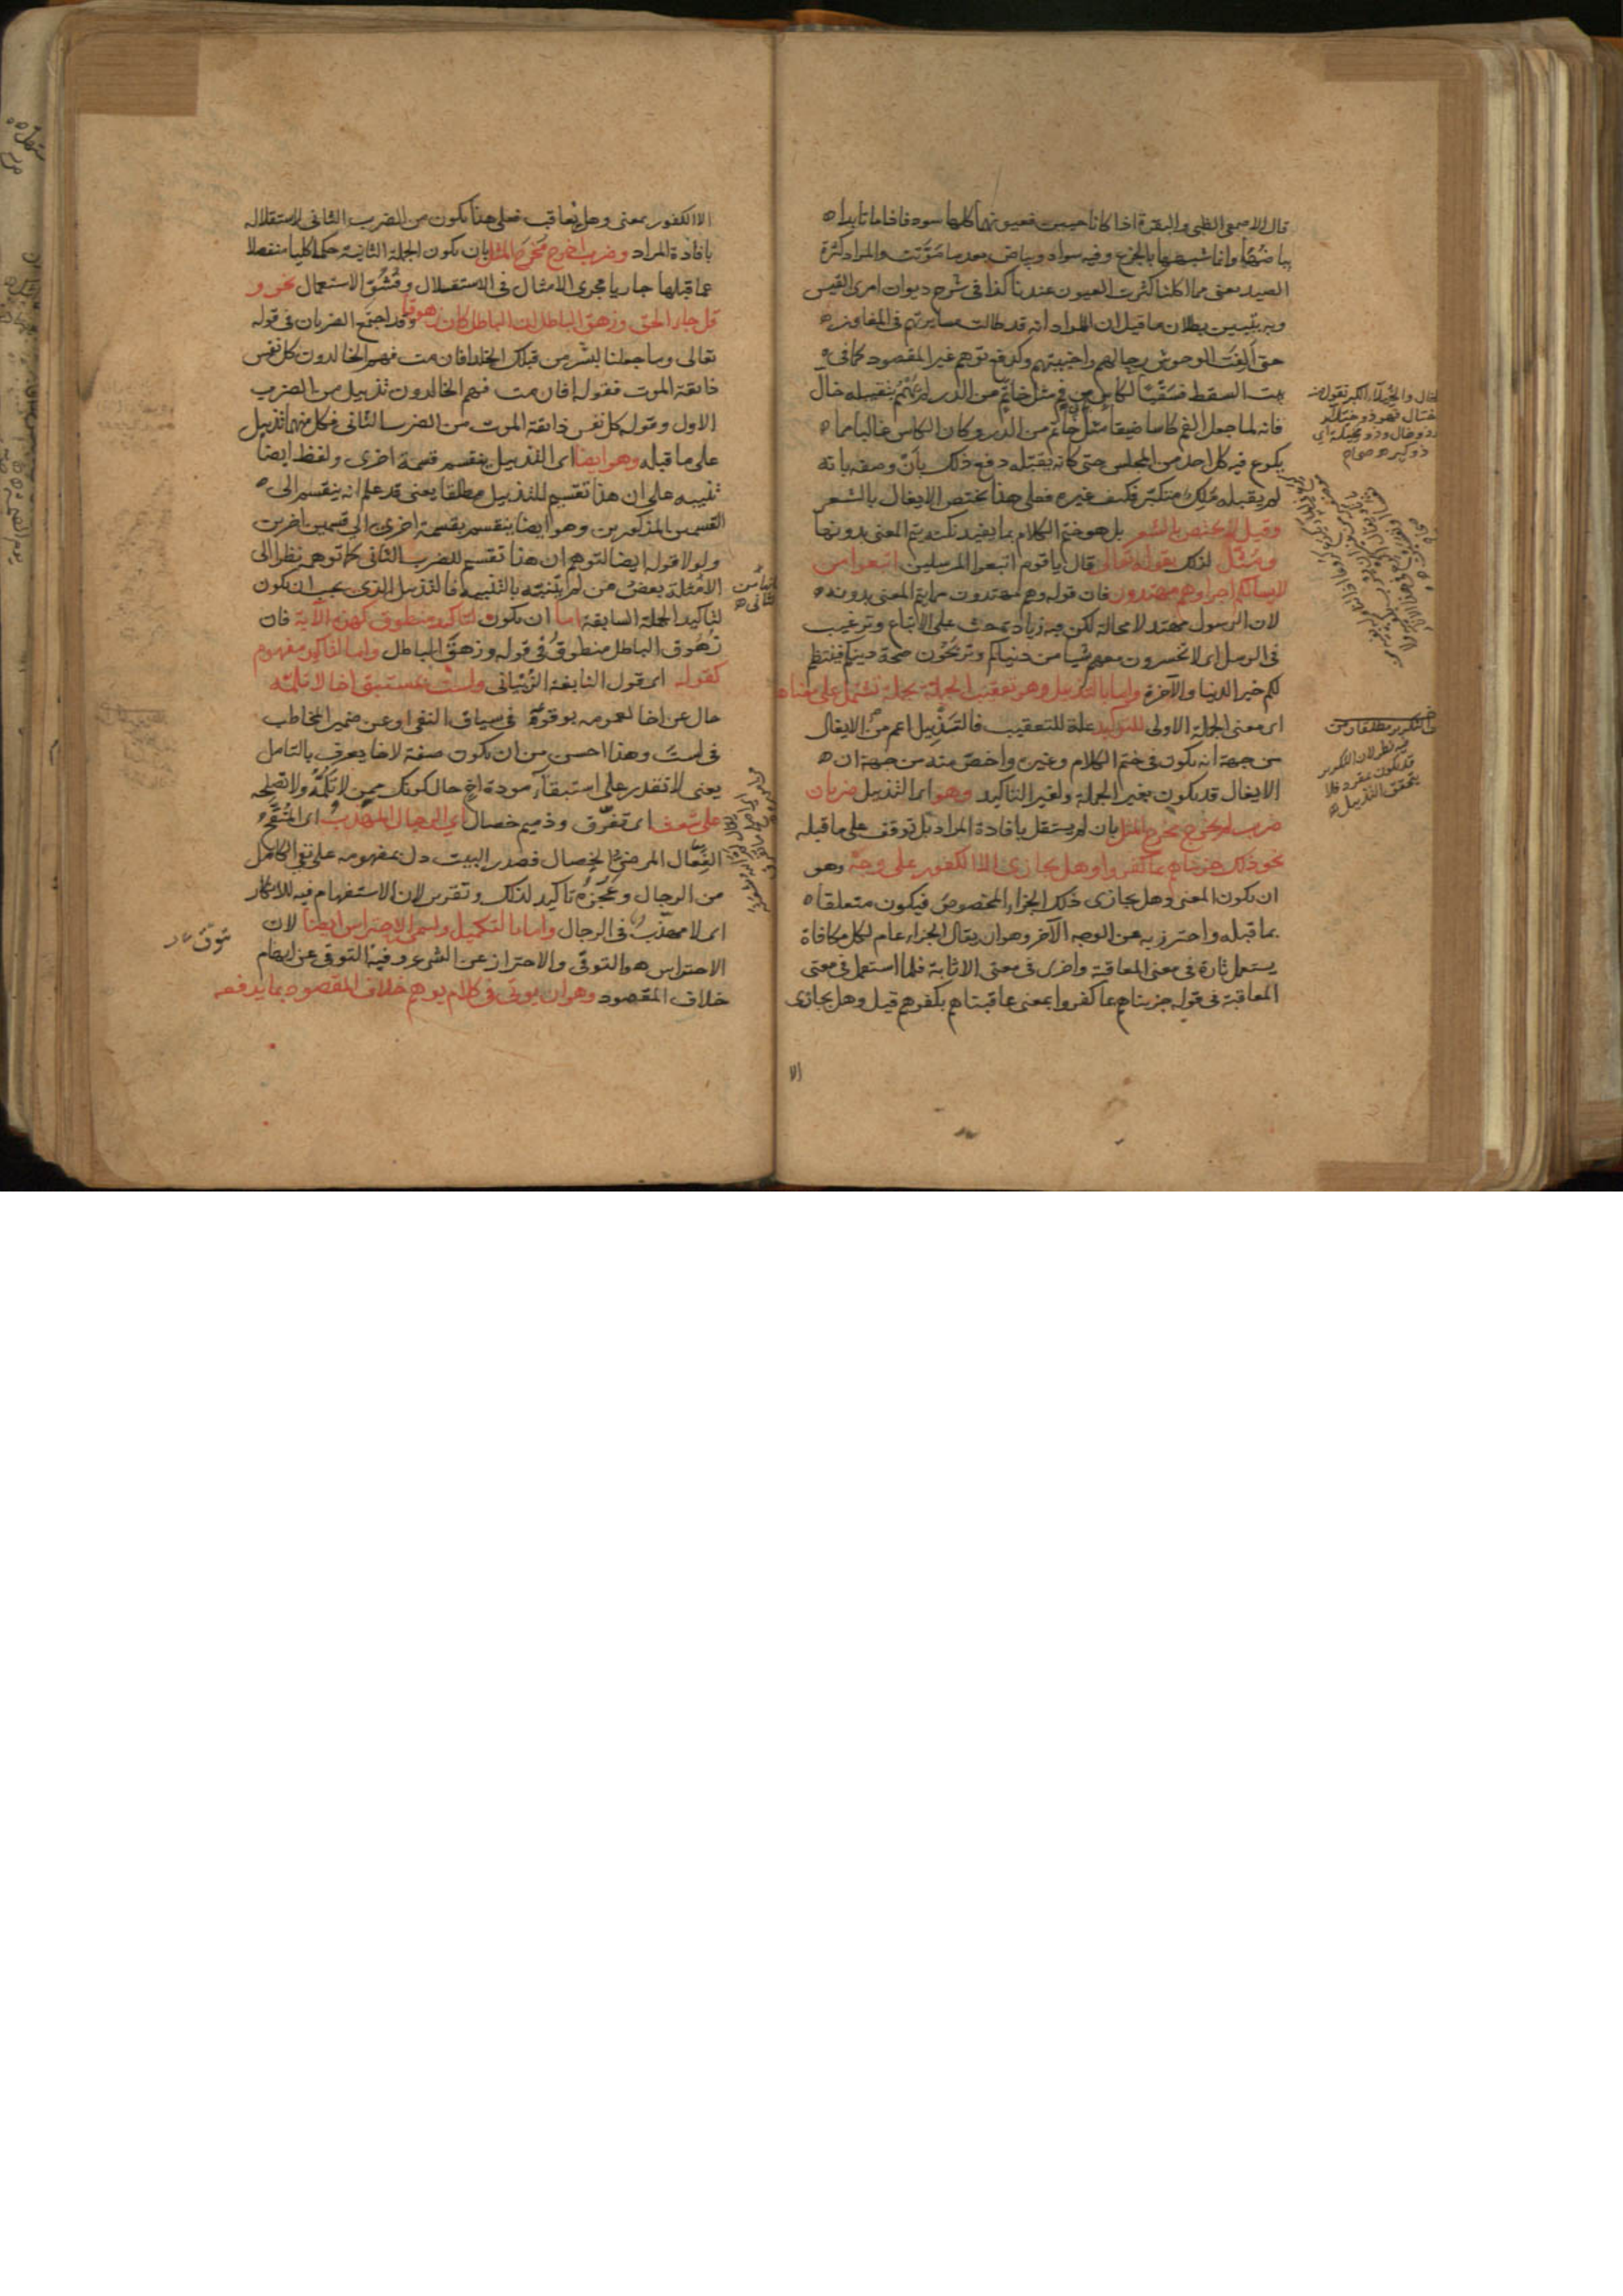 قال الاصمعى الظبى والبقرة اذا كانا حيين فعيونهما كلها سود فاذا ماتا بدا
بياضها وانما شبهها بالجزع وفيه سواد وبياض بعد ما موتت والمراد كثرة
الصيد يعنى مما اكلنا كثرت العيون عندنا كذا فى شرح ديوان امرئ القيس
وبه يتبين بطلان ما قيل ان المراد انه قد طالت مسايرتهم فى المفاوز
حتى الفت الوحوش رحالهم واخبيتهم وكدفع توهم غير المقصود كما فى
بيت السقط فسقيا لكاس من فم مثل خاتم من الدر لم يهمم بتقبيله خال
فانه لما جعل الفم كاسا ضيقا مثل خاتم من الدر وكان الكاس غالبا مما
يكرع فيه كل احد من المجلس حتى كانه يقبّله دفع ذلك بان وصفه بانه
لم يقبله ملك متكبر فكيف غيره فعلى هذا يختص الايغال بالشعر
وقيل لا يختص بالشعر بل هو ختم الكلام بما يفيد نكتة يتم المعنى بدونها
ومثل لذلك بقوله تعالى قال يا قوم اتبعوا المرسلين اتبعوا من
لا يسالكم اجرا وهم مهتدون فان قوله وهم مهتدون مما يتم المعنى بدونه
لان الرسول مهتد لا محالة لكن فيه زيادة حث على الاتباع وترغيب
فى الرسل اى لا تخسرون معهم شيا من دنياكم وتربحون صحة دينكم فينتظم
لكم خير الدنيا والآخرة واما بالتذييل وهو تعقيب الجملة بجملة تشتمل على معناها
اى معنى الجملة الاولى للتوكيد علة للتعقيب فالتذييل اعم من الايغال
من جهة انه يكون فى ختم الكلام وغيره واخص منه من جهة ان
الايغال قد يكون بغير الجملة ولغير التاكيد وهو اى التذييل ضربان
ضرب لم يخرج مخرج المثل بان لم يستقل بافادة المراد بل توقف على ما قبله
نحو ذلك جزيناهم بما كفروا وهل يجازى الا الكفور على وجه وهو
ان يكون المعنى وهل يجازى ذلك الجزاء المخصوص فيكون متعلقا
بما قبله واحترز به عن الوجه الآخر وهو ان يقال الجزاء عام لكل مكافاة
يستعمل تارة فى معنى المعاقبة واخرى فى معنى الاثابة فلما استعمل فى معنى
المعاقبة فى قوله جزيناهم بما كفروا بمعنى عاقبناهم بكفرهم قيل وهل يجازى
الا
الخال والخيلاء الكبر تقول منه
اختال فهو ذو خيلاء
وذو خال وذو مخيلة اى
ذو كبر صحاح
فيه نظر لان التكرير
قد يكون بمفرد فلا
يتحقق التذييل
الا الكفور بمعنى وهل يعاقب فعلى هذا يكون من الضرب الثانى لاستقلاله
بافادة المراد وضرب اخرج مخرج المثل بان يكون الجملة الثانية حكما كليا منفصلا
عما قبلها جاريا مجرى الامثال فى الاستقلال وفشو الاستعمال نحو و
قل جاء الحق وزهق الباطل ان الباطل كان زهوقا وقد اجتمع الضربان فى قوله
تعالى وما جعلنا لبشر من قبلك الخلد افان مت فهم الخالدون كل نفس
ذائقة الموت فقوله افان مت فهم الخالدون تذييل من الضرب
الاول وقوله كل نفس ذائقة الموت من الضرب الثانى فكل منهما تذييل
على ما قبله وهو ايضا اى التذييل ينقسم قسمة اخرى ولفظ ايضا
تنبيه على ان هذا تقسيم للتذييل مطلقا يعنى قد علم انه ينقسم الى
القسمين المذكورين وهو ايضا ينقسم بقسمة اخرى الى قسمين اخرين
ولولا قوله ايضا لتوهم ان هذا تقسيم للضرب الثانى كما توهم نظرا الى
الامثلة بعض من لم يتنبه بالتنبيه فالتذييل الذى يجب ان يكون
لتاكيد الجملة السابقة اما ان يكون لتاكيد منطوق كهذه الآية فان
زهوق الباطل منطوق فى قوله وزهق الباطل واما لتاكيد مفهوم
كقوله اى قول النابغة الذبيانى ولست بمستبق اخا لا تلمه
حال عن اخا لعمومه بوقوعه فى سياق النفى او عن ضمير المخاطب
فى لست وهذا احسن من ان يكون صفة لاخا يعرف بالتامل
يعنى لا تقدر على استبقاء مودة اخ حال كونك ممن لا تلمه ولا تصلحه
على شعث اى تفرق وذميم خصال اى الرجال المهذب اى المنقح
الفعال المرضى الخصال فصدر البيت دل بمفهومه على نفى الكامل
من الرجال وعجزه تاكيد لذلك وتقرير لان الاستفهام فيه للانكار
اى لا مهذب فى الرجال واما بالتكميل ويسمى الاحتراس ايضا لان
الاحتراس هو التوقى والاحتراز عن الشئ وفيه التوقى عن ايهام
خلاف المقصود وهو ان يوتى فى كلام يوهم خلاف المقصود بما يدفعه